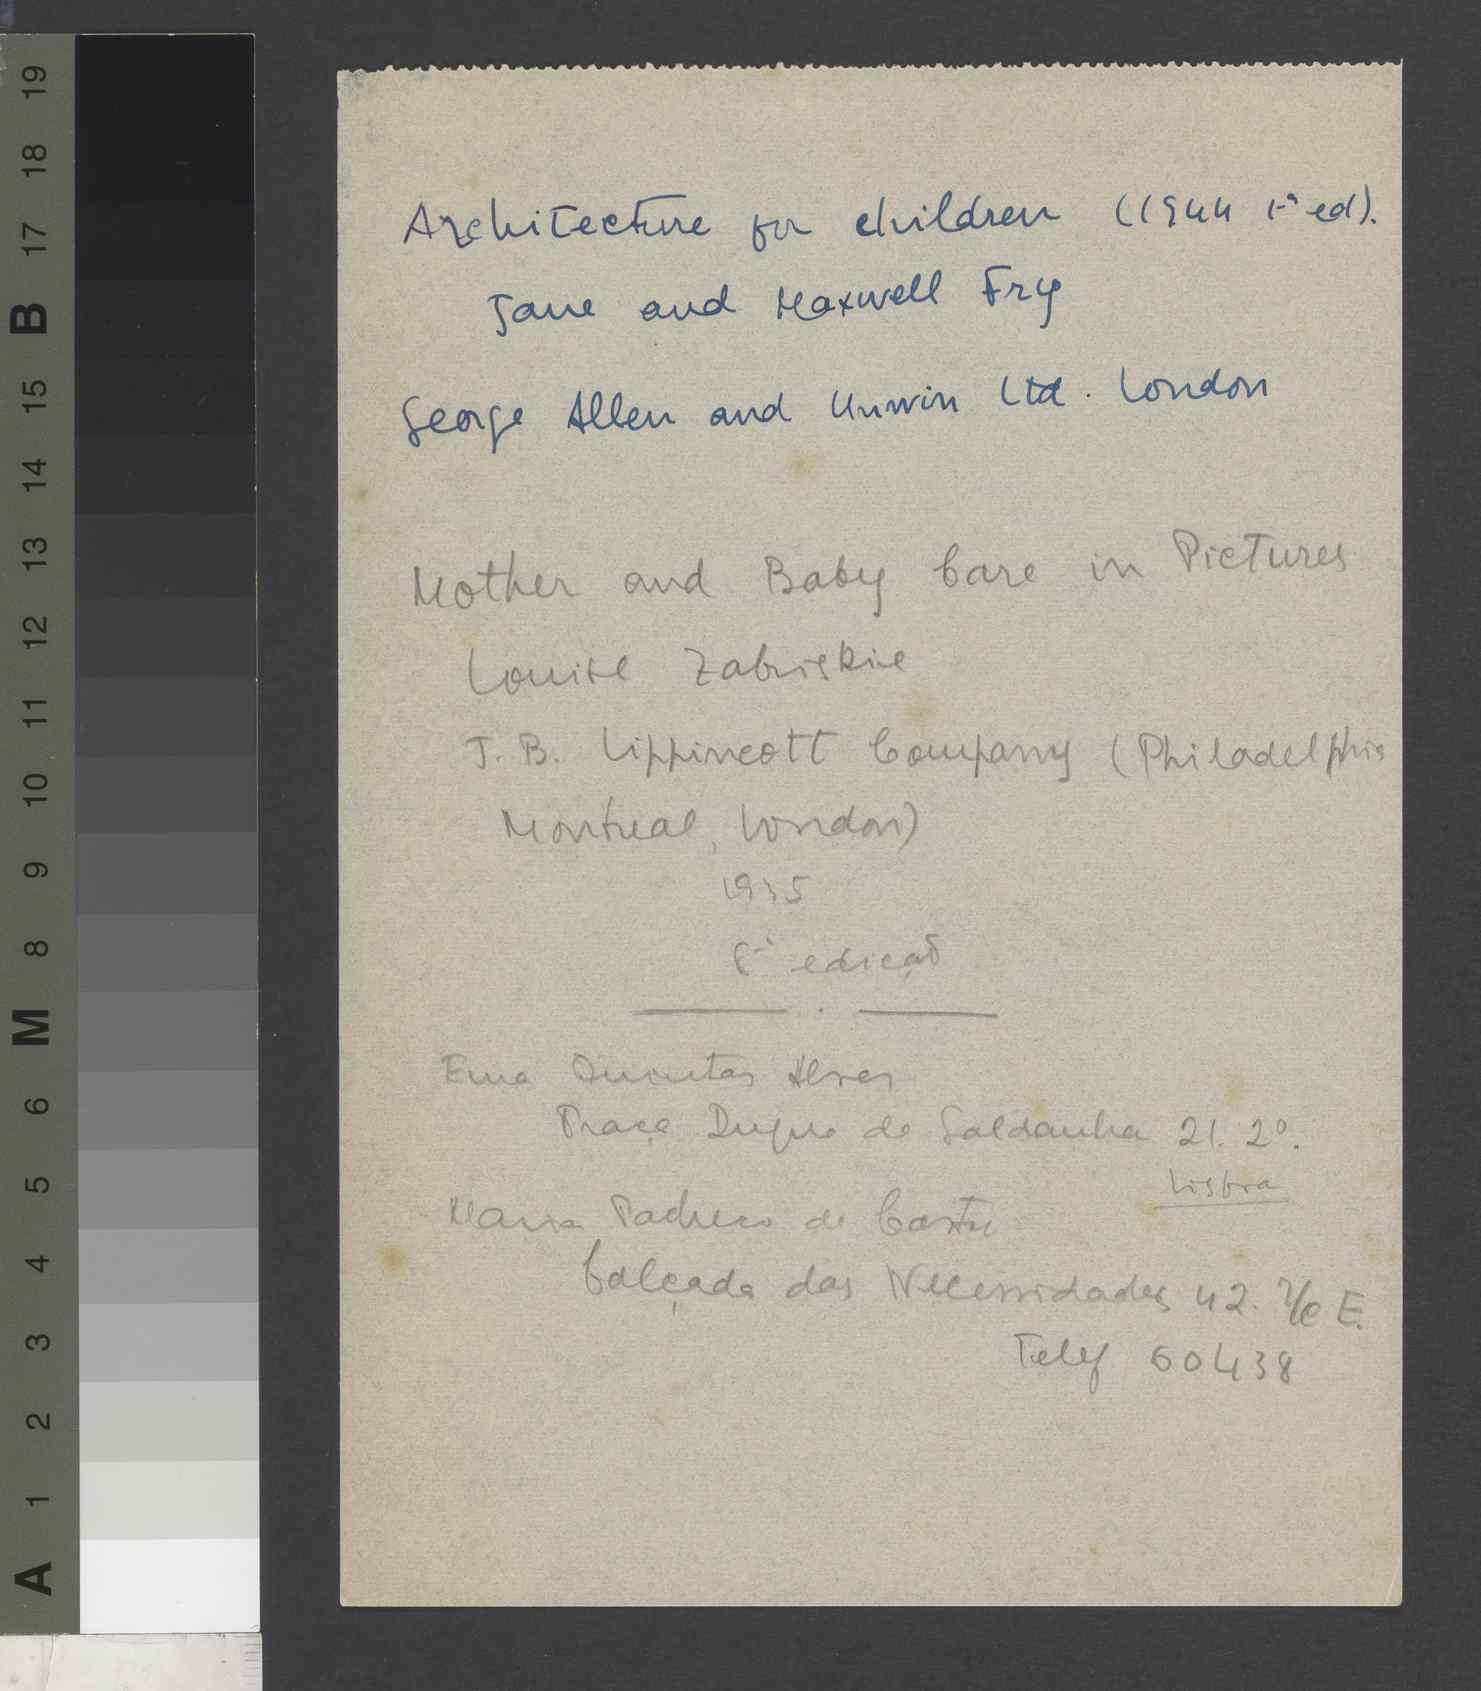 19
18
17
B
15
14
13
12
11
10
9
8
M
6
5
4
3
2
1
A
Architecture for children (1944 1ª ed).
Jane and Maxwell Fry
George Allen and Unwin Ltd. London
Mother and Baby Care in Pictures
Louise Zabriskie
J. B. Lippincott Company (Philadelphia
Montreal, London)
1935
edição
Ema Quintas Alves
Praça Duque de Saldanha 21. 2º.
Lisboa
Maria Pacheco de Castro
Calçada das Necessidades 42. r/c E.
Telef 60438